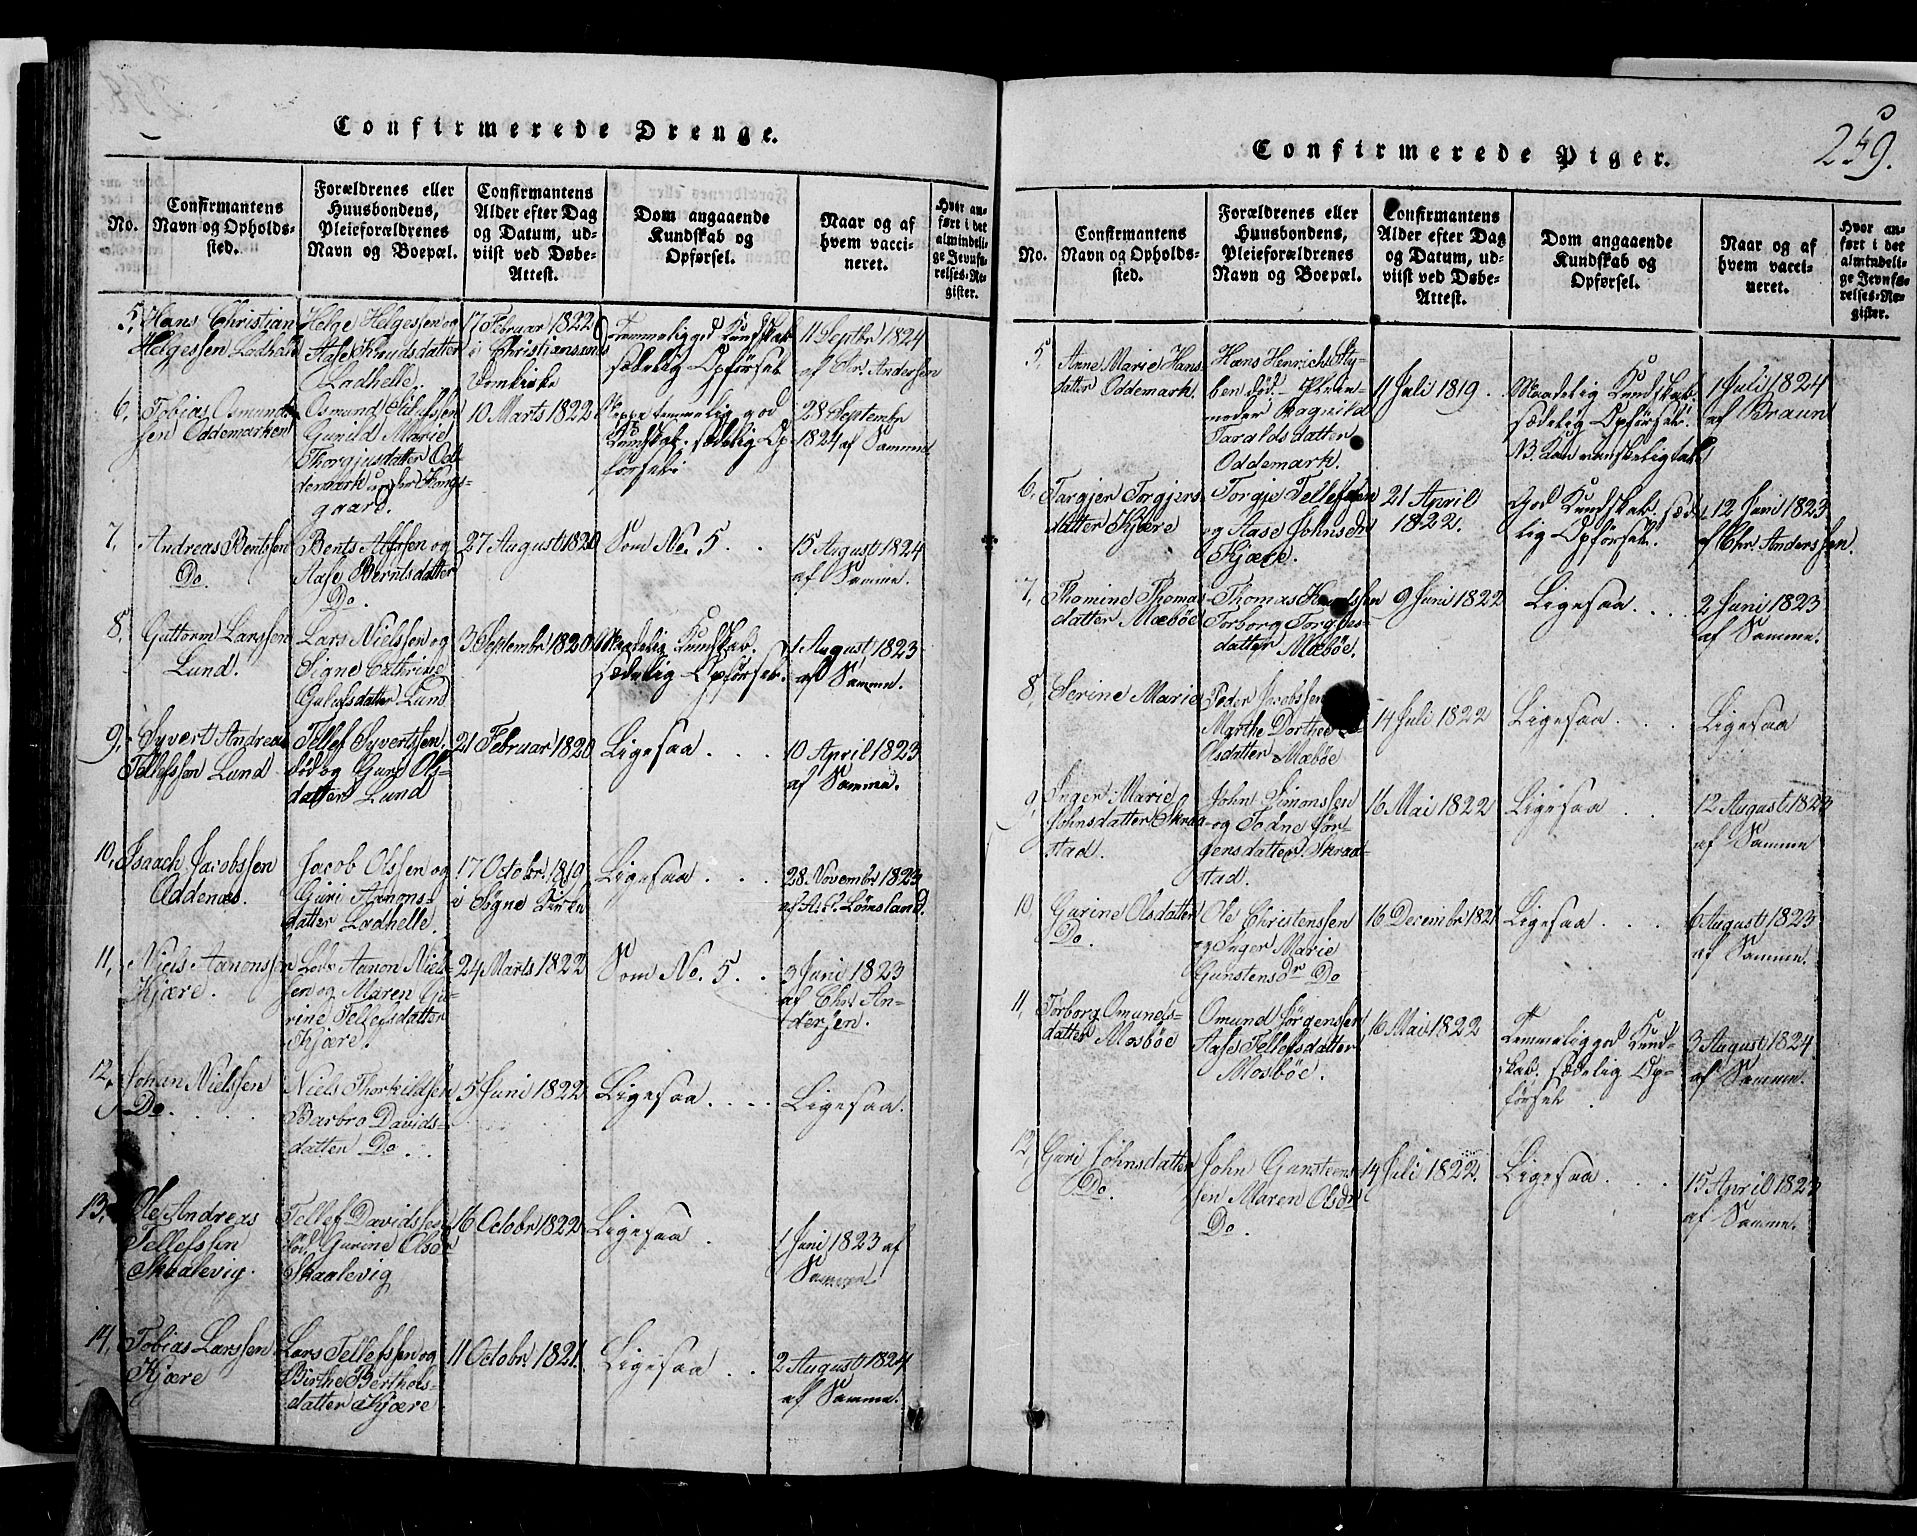 Confirmerede Drenge.
No.
Confirmantens
Navn og Opholds-
sted.
Forældrenes eller
Huusbondens,
Pleieforældrenes
Navn og Boepæl.
Confirmantens
Alder efter Dag
og Datum, ud-
viist ved Døbe-
Attest.
Dom angaaende
Kundskab og
Opførsel.
Naar og af
hvem vacci-
neret.
Hvor an-
ført i det
almindeli-
ge Jevnfø-
relses-Re-
gister.
5,
Hans Christian
Helgessen Ladhelle
Helge Helgessen og
Aase Knudsdatter
Ladhelle.
17 Februar 1822
i Christiansands
Domkirke
Temmelig god Kundskab
sædelig Opførsel
11 Septbr 1824
af Chr. Anderssen
6,
Tobias Osmunds
sen Oddemarken
Osmund
Gunild Marie
Thorgjusdatter Od-
demark under Kongs-
gaard.
10 Marts 1822
temmelig god
Kundskab. sædelig Op
førsel.
28 Septembr
1824 af Samme
7,
Andreas Bentssen
Do.
Bent og
Aase Berntsdatter
Do.
27 August 1820
Som No. 5 . .
15 August 1824
af Samme.
8,
Guttorm Larssen
Lund.
Lars Nielssen og
Signe Cathrine
Gulufsdatter Lund
3 Septembr 1820
Maadelig Kundskab.
sædelig Opførsel.
1 August 1823
af Samme.
9,
Syvert Andreas
Tellefssen Lund
Tellef Syvertssen
død og Guri Ols-
datter Lund
21 Februar 1820
Ligesaa . . .
10 April 1823
af Samme.
10,
Isaach Jacobssen
Oddenæs.
Jacob Olssen og
Guri Aanons-
datter Ladhelle.
17 Octobr 1819
i Søgne Kirke
Ligesaa . . .
28. Novembr 1823
af A. P. Lømsland.
11,
Niels Aanonssen
Kjære.
Aanon Niels
sen og Maren Gu-
rine Tellefsdatter
Kjære.
24 Marts 1822
Som No. 5 . .
3 Juni 1823
af Chr. An-
dersen.
12,
Johan Nielssen
Do. . . .
Niels Thorkildsen
Barbro Davids-
datter Do . .
5 Juni 1822
Ligesaa . . . .
Ligesaa.
13,
Ole Andreas
Tellefssen
Skaalevig.
Tellef Davidssen
død, Gurine Olsdr
Skaalevig
16 Octobr 1822
Ligesaa .
1 Juni 1823 af
Samme
14,
Tobias Larssen
Kjære
Lars Tellefssen og
Birthe Berthels-
datter Kjære
11 Octobr 1821.
Ligesaa . .
2 August 1824
af Samme.
Confirmerede Piger.
259.
No.
Confirmantens
Navn og Opholds-
sted.
Forældrenes eller
Huusbondens,
Pleieforældrenes
Navn og Boepæl.
Confirmantens
Alder efter Dag
og Datum, ud-
viist ved Døbe-
Attest.
Dom angaaende
Kundskab og
Opførsel.
Naar og af
hvem vacci-
neret.
Hvor an-
ført i det
almindeli-
ge Jevnfø-
relses-Re-
gister.
5,
Anne Marie Hans
datter Oddemark.
Hans Henrich Sty-
ben død. Pleie-
moder Ragnild
Taraldsdatter
Oddemark.
11 Juli 1819.
Maadelig Kundskab.
sædelig Opførsel.
NB. Kan vanskelig tale
1 Juli 1824
af Braun
6,
Targjer Torgjers
datter Kjære
Torgje Tellefssen
og Aase Johnsdr
Kjære.
21 April
1822.
God Kundskab. sæde
lig Opførsel.
12 Juni 1823
af Chr. Anderssen.
7,
Thomine Thomas-
datter Mæbøe
Thomas Knudssen
Torborg Torgjes-
datter Mæbøe.
9 Juni 1822
Ligesaa . . .
2 Juni 1823
af Samme.
8,
Serine Marie
Peder Jacobssen
Marthe Dorthea
Olsdatter Mæbøe
14 Juli 1822
Ligesaa . .
Ligesaa
9,
Inger Marie
Johnsdatter Skraa-
stad.
John Simonssen
og Todne Jør-
gensdatter. Skraa-
stad.
16 Mai 1822
Ligesaa . .
12 August 1823
af Samme
10,
Gurine Olsdatter
Do.
Ole Christenssen
og Inger Marie
Gunstensdr Do
16 Decembr 1821
Ligesaa . . .
6 August 1823
af Samme.
11,
Torborg Omunds-
datter Mosbøe
Omund Jørgenssen
Aase Tellefsdatter
Mosbøe.
16 Mai 1822
Temmelig god Kund-
skab. sædelig Op-
førsel .
3 August 1824
af Samme.
12,
Guri Johnsdatter
Do.
John Gunsteens
sen Maren Olsdr
Do.
14 Juli 1822.
Ligesaa . . .
15 April 1823
af Samme.